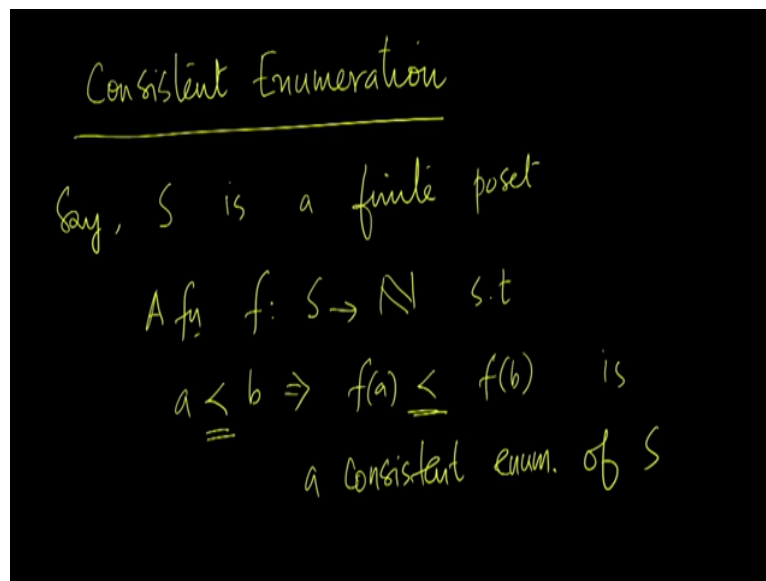 Consistent Enumeration
Say, S is a finite poset
A fn f: S → ℕ s.t
a ≤ b ⇒ f(a) ≤ f(b) is
a consistent enum. of S